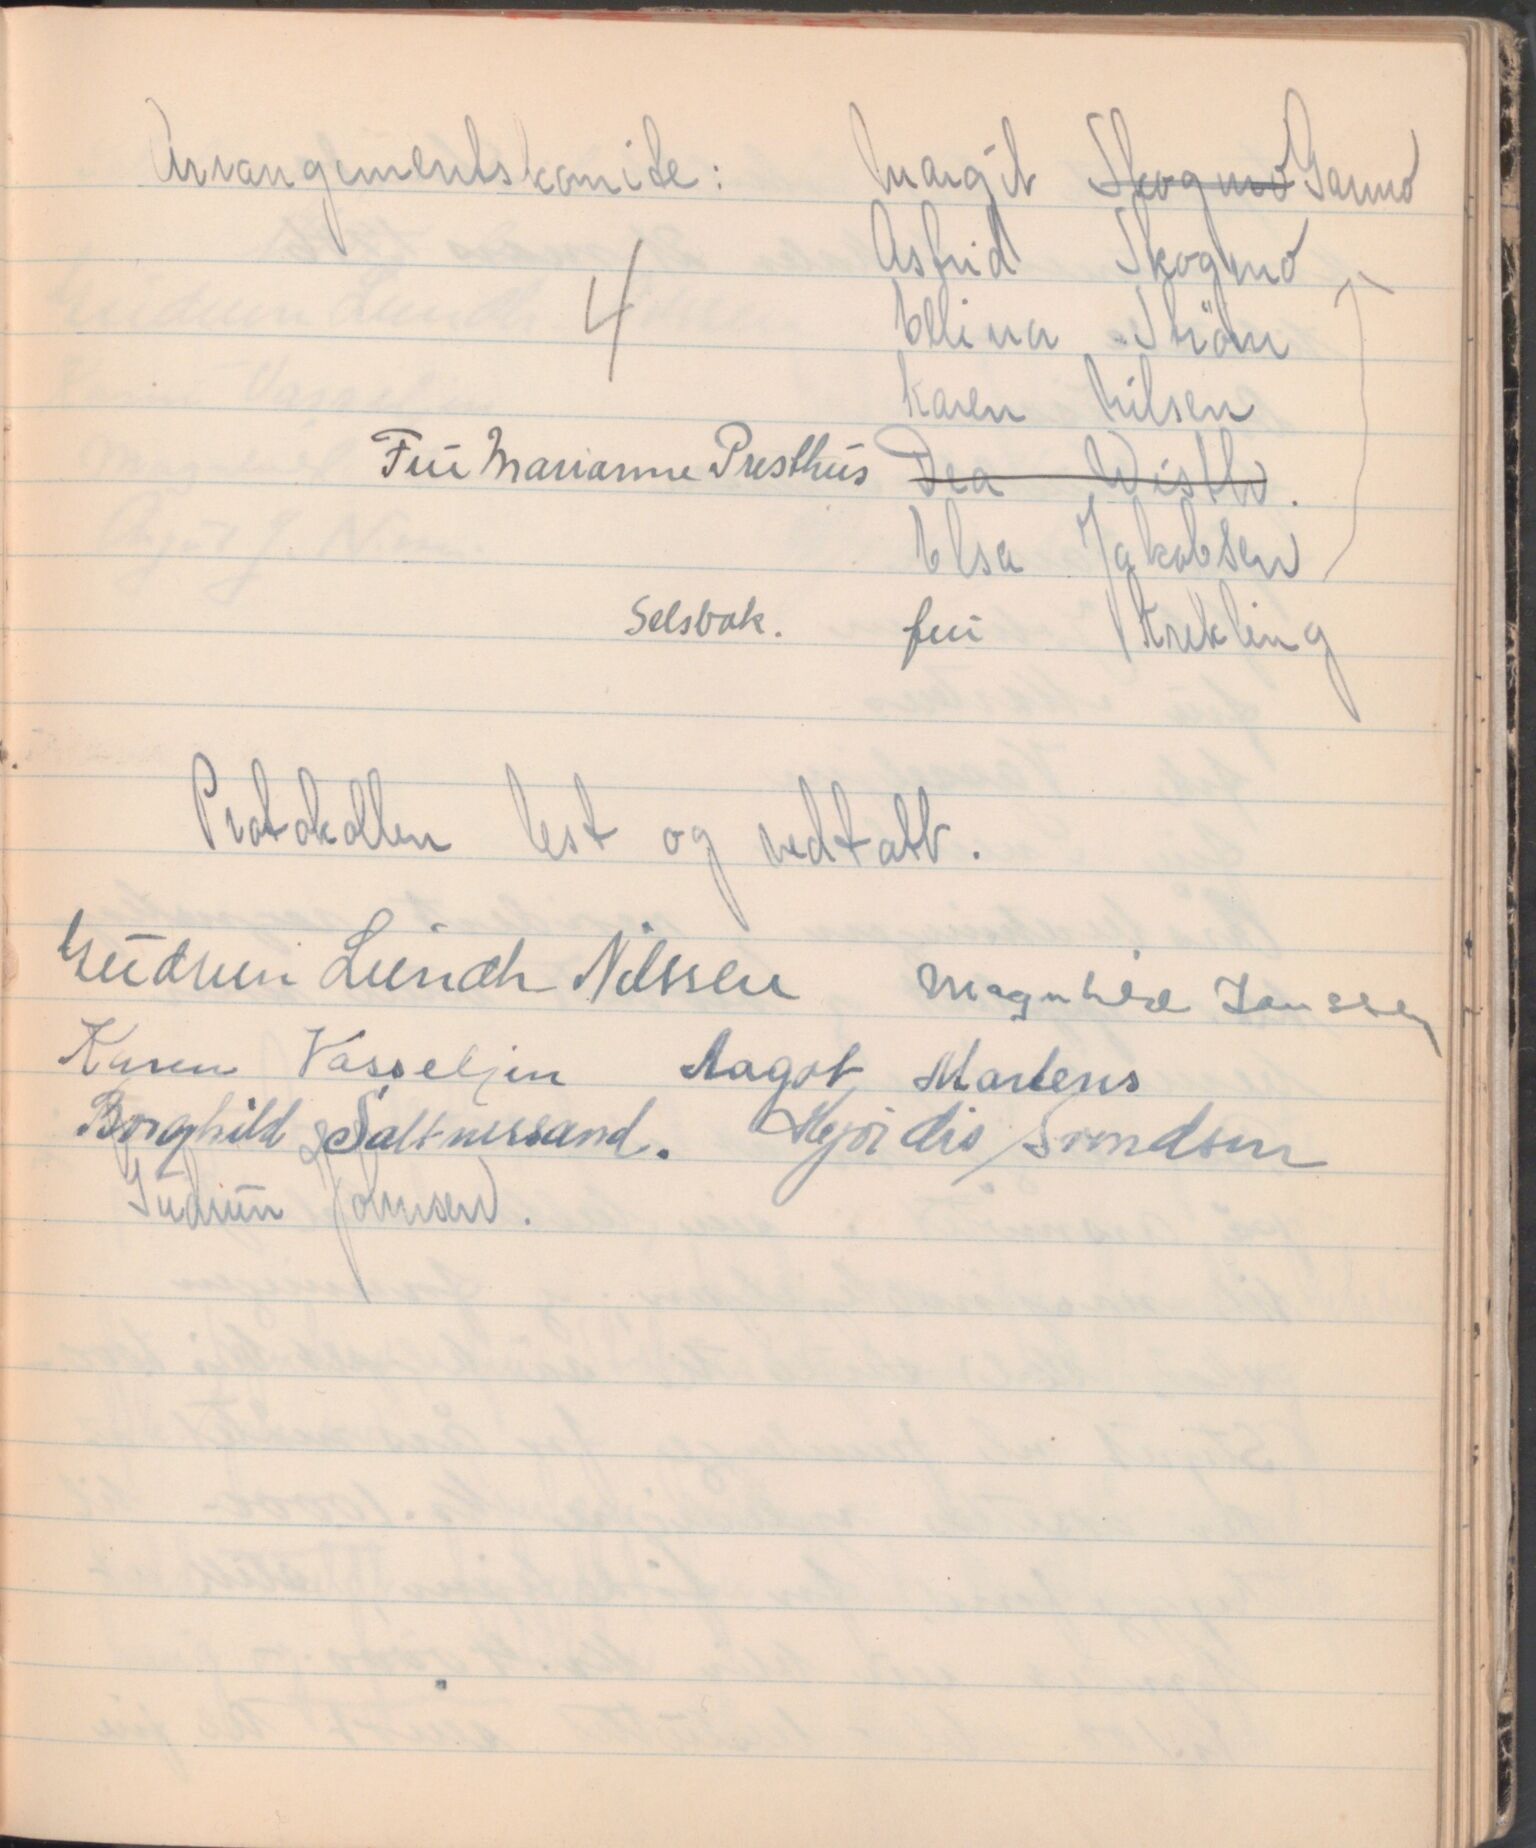 Arrangementskomite: Margit Skogmo Sanmo
Astrid Skogmo
4
Ellina Ström
Karen Nilsen
Fru Marianne Presthus Dea Wisth.
Elsa Jakobsen
Selsbak. fru Krekling
Protokollen lest og vedtatt.
Gudrun Lundh Nilssen Magnhild Janssen
Karen Vasseljen Aagot Martens
Borghild Saltnessand. Hjördis Svendsen
Gudrun Johnsen.